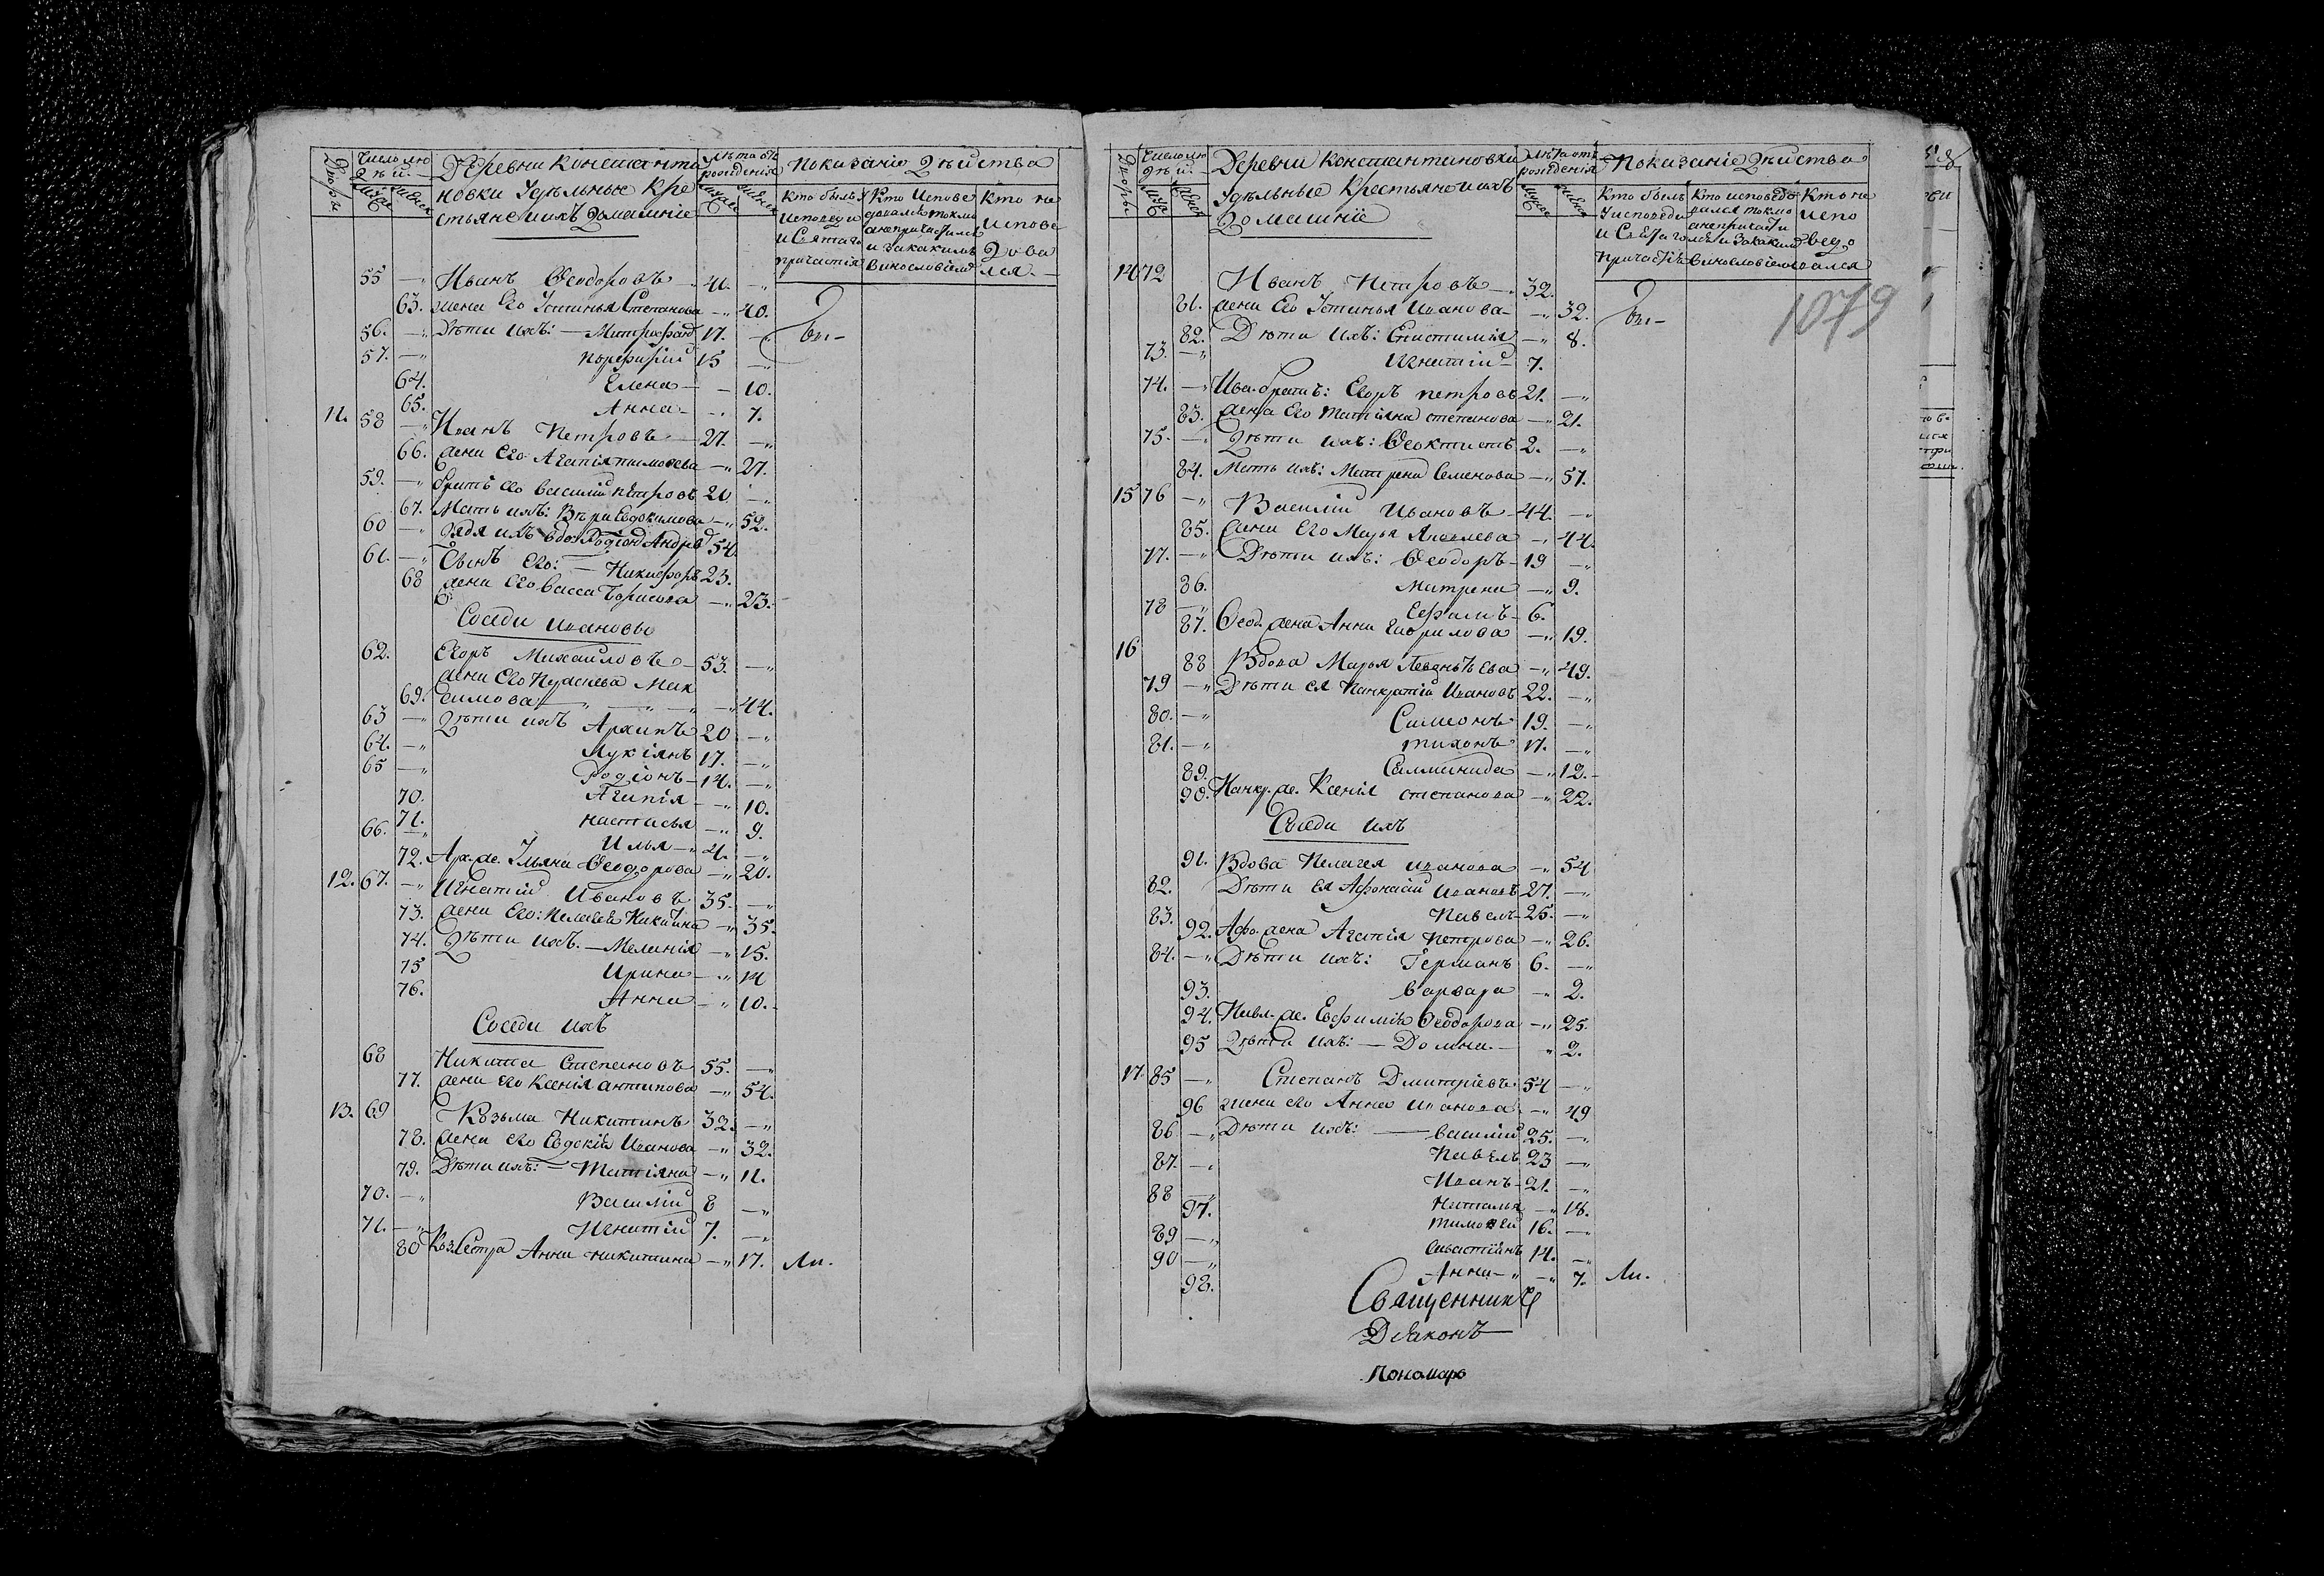 Дворы
Число лю
дѣй
Мужес
Женск
Деревни Константи
новки Удѣльные Кре
стьяне ихъ домашніе
Лѣта отъ
рожденія
Мужес
Женск
Показаніе дѣйства
Кто былъ у
Исповеди
и Святаго
причастія
Кто Испове
довался токмо
а не причастился
и за какимъ
винословіемъ
Кто не
испове
дова
лся.
55 — Иванъ Ѳеодоровъ 41. —
63. жена Его Устинья Степанова — 40.
56. — Дѣти ихъ: — Митрофанъ 17. — бы-
57. — порфирій 15 —
64. Елена — 10.
65. Анна — 7.
11. 58 — Иванъ Петровъ 27. —
66. жена Его Агапія тимоѳева — 27.
59. — братъ его василій петровъ 20 —
67. Мать ихъ: Вѣра Евдокимова — 52.
60 — дядя ихъ вдов: Родіонъ Андрѣ 54.
61. — Сынъ Его: — Никифоръ 23.
68 жена Его васса борисова — 23.
Соседи ивановы
62. Егоръ Михайловъ 53. —
жена Его Праскева Мак
69. симова — 44.
63 — дѣти ихъ Архипъ 20 —
64. — Лукіянъ 17. —
65 — Родіонъ 14. —
70. Агапія — 10.
71. настасья — 9.
66. — Илья 4. —
72. Арх. же. Ульяна Ѳеодорова — 20.
12. 67. — Игнатій Ивановъ 35. —
73. жена Его: пелагея Никитина — 35.
74. дѣти ихъ. — Меланія — 15.
75 Ирина — 14
76. Анна — 10.
Соседи ихъ
68 Никита Степановъ 55. —
77. жена его Ксенія антипова — 54.
13. 69 Козьма Никитинъ 32. —
78. жена его Евдокія Иванова — 32.
79. Дѣти ихъ: — Татіяна — 11.
70. — Василій 8 —
71. — Игнатій 7. —
80 Коз. Сестра Анна никитина — 17. ли.
Дворы
Число лю
дѣй
Муже
Женск
Деревни Константиновки
Удѣльные Крестьяне ихъ
домашніе
Лѣта отъ
рожденія
Мужес
Женск
Показаніе дѣйства
Кто былъ
У исповеди
и Святаго
причастія
Кто исповедо
вался токмо
а не причасти
лся и за какимъ
винословіемъ
Кто не
испо
ведо
вался
14 72 Иванъ Петровъ 32.
1079
81. жена Его Устинья Иванова — 32. бы-
82. Дѣти ихъ: Епистимія — 8.
73. — Игнатій 7.
74. — Ива. братъ: Егоръ петровъ 21. —
83. жена Его татіяна степанова — 21.
75. — Дѣти ихъ: Ѳеоктистъ 2. —
84. Мать ихъ: Матрена Семенова — 57.
15 76 — Василій Ивановъ 44. —
85. жена Его Марья Яковлева — 44.
77. — Дѣти ихъ: Ѳеодоръ 19 —
86. Матрена — 9.
78 — Ефимъ 6.
87. Ѳеод. жена Анна Гаврилова — 19.
16
88 Вдова Марья Леваньтьева — 49.
79 — Дѣти ея Панкратій Ивановъ 22. —
80. — Симеонъ 19. —
81. — тихонъ 17. —
89. Саломонида — 12.
90. Панкр. же. Ксенія степанова — 22.
Соседи ихъ
91. Вдова Пелагея иванова — 54
82. Дѣти ея Афонасій Ивановъ 27. —
83. Павелъ 25. —
92. Афо. жена Агапія петрова — 26.
84. — Дѣти ихъ: Германъ 6. —
93. варвара — 2.
94. Павл. же. Евфимія Ѳеодорова — 25.
95 дѣти ихъ: — Домна — 2.
17. 85 — Степанъ Дмитріевъ 54 —
96 жена его Анна иванова — 49
86 — Дѣти ихъ: — василій 25. —
87. — Павелъ 23 —
88 — Иванъ 21. —
97. Наталья — 18.
89 — тимоѳей 16. —
90 — Савастіянъ 14. —
98. Анна — 7. ли.
Священникъ
Діаконъ
Пономарь